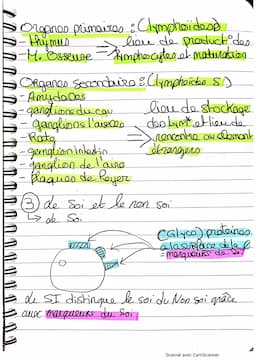 Organes primaires : (lymphoïdes)
- Thymus lieu de product° des
- M. Osseuse lymphocytes et maturation
Organes Secondaires : (lymphoïdes S)
- Amygdales
- ganglions du cou lieu de stockage
- ganglions l'aisselles des lym* et lieu de
- Rate rencontre
- ganglion Intestin étrangers
- ganglion de l'aine
- Plaques de Peyer
③ de Soi et le non soi
↳ de Soi
(Glyco) protéines
à la surface de la
= marqueurs du Soi
de SI distingue le soi du Non soi grâce
aux marqueurs du Soi
Scanné avec CamScanner